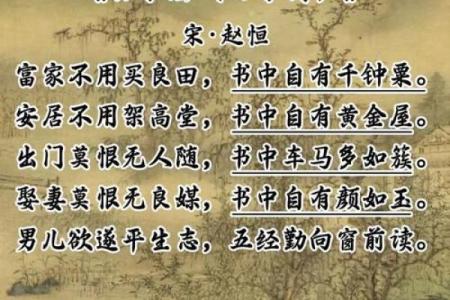 宋·赵恒
富家不用买良田，书中自有千钟粟。
安居不用架高堂，书中自有黄金屋。
出门莫恨无人随，书中车马多如簇。
娶妻莫恨无良媒，书中自有颜如玉。
男儿欲遂平生志，五经勤向窗前读。